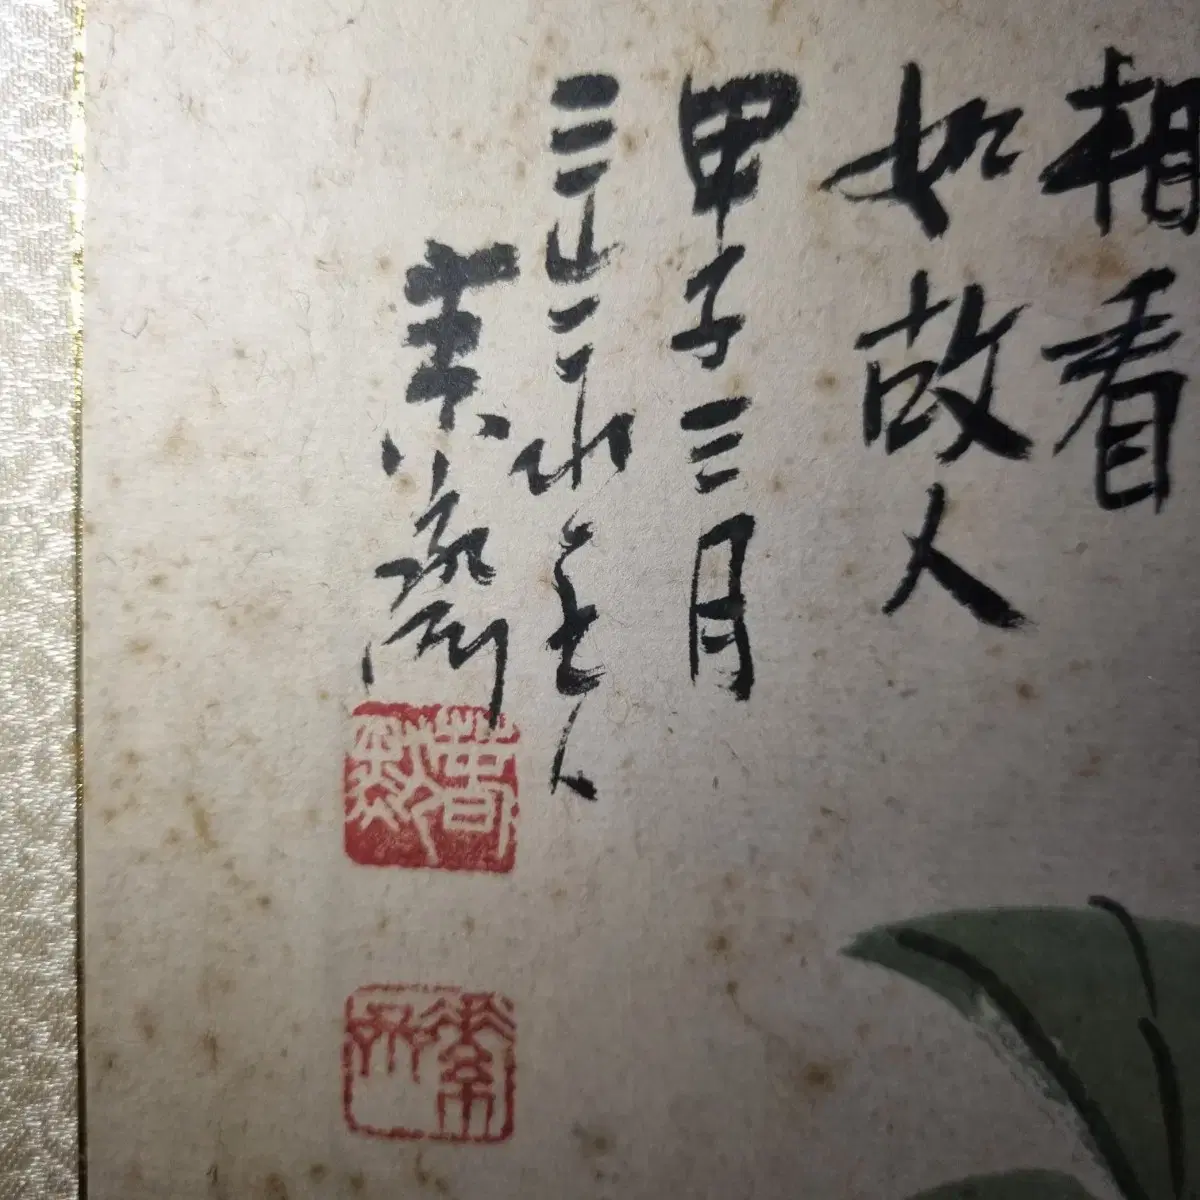 相看
如故人
甲子三月
三山二水主人
素齋